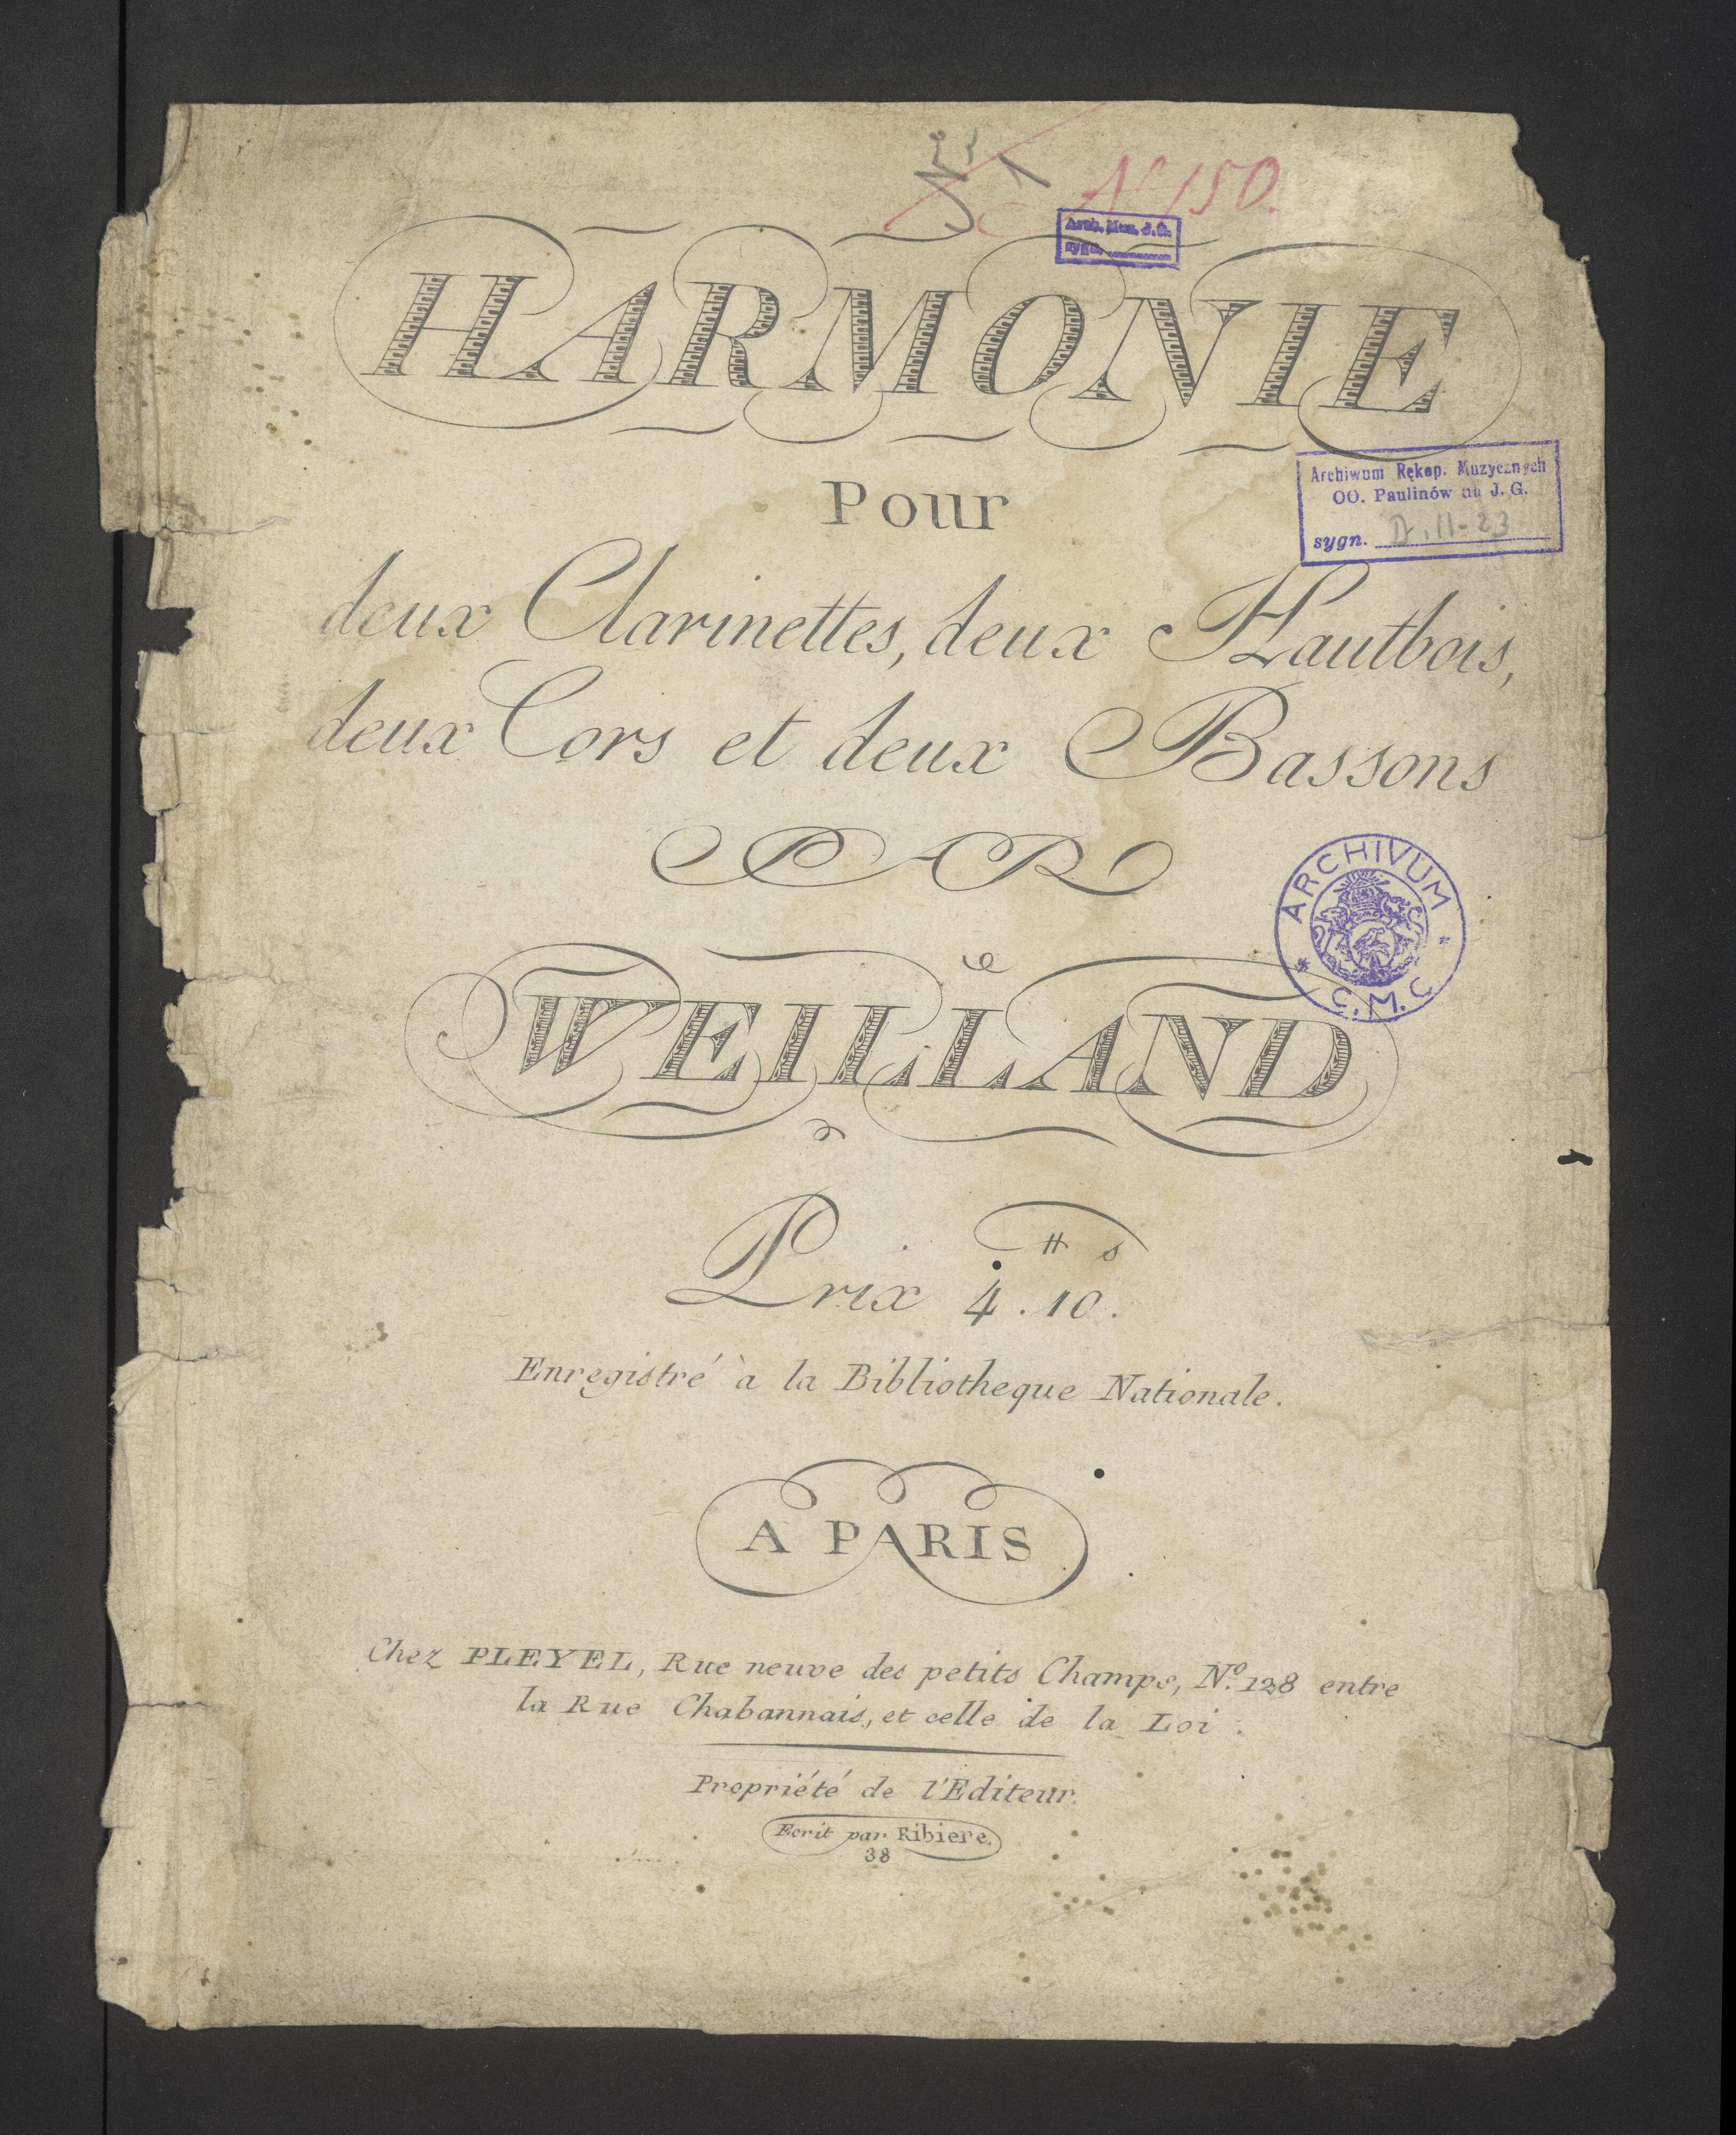 Nro 1
No 150.
Arch. Muz. J. G.
sygn.
HARMONIE
Archiwum Rękop. Muzycznych
OO. Paulinów na J. G.
sygn. D. II-23
Pour
deux Clarinettes, deux Hautbois,
deux Cors et deux Bassons
PAR
ARCHIVUM
C.M.C.
WEILLAND
Prix 4.tt 10.s
Enregistré à la Bibliotheque Nationale.
A PARIS
Chez PLEYEL, Rue neuve des petits Champs, No. 128 entre
la Rue Chabannais, et celle de la Loi.
Propriété de l'Editeur.
Ecrit par Ribiere.
38